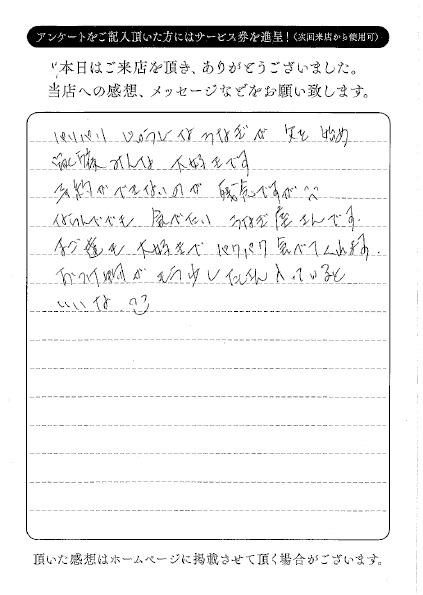 アンケートをご記入頂いた方にはサービス券を進呈！（次回来店から使用可）
本日はご来店を頂き、ありがとうございました。
当店への感想、メッセージなどをお願い致します。
パリパリ うなぎが 父を 始め
家族みんな 大好きです
予約ができないのが 残念ですが
ならんででも 食べたい うなぎ屋さんです。
子ども達も 大好きで パクパク 食べてくれます。
お漬物がもう少したくさん入っていると
いいな
頂いた感想はホームページに掲載させて頂く場合がございます。